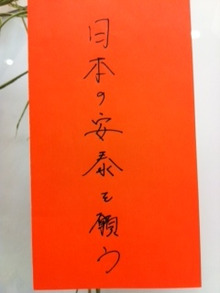 日本の安泰を願う